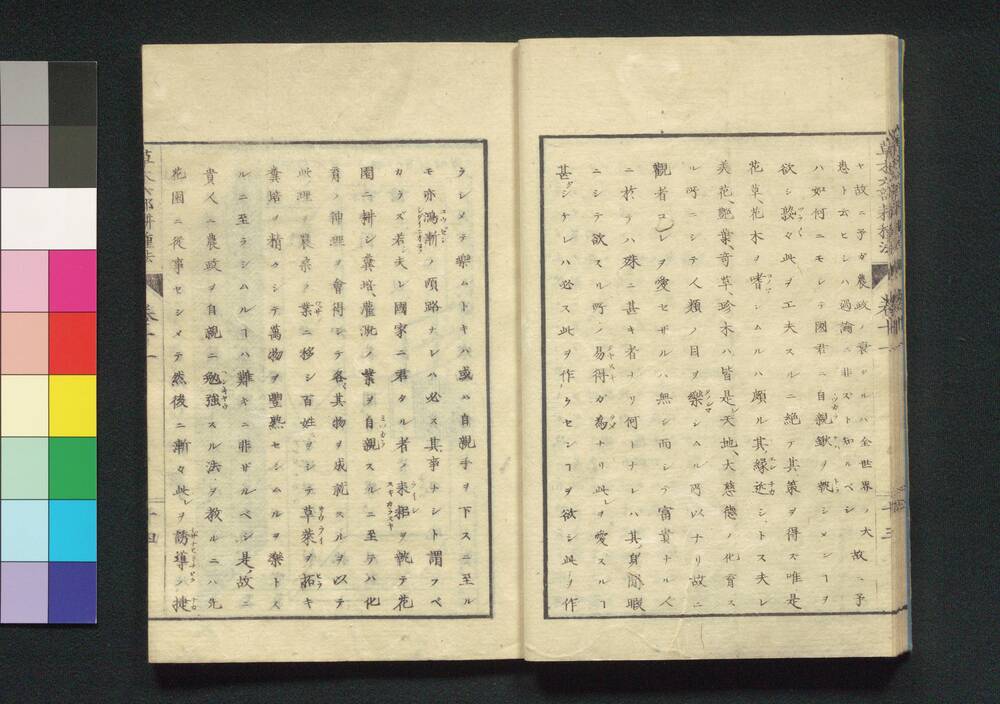 ヤ故ニ予ガ農政ノ衰フルハ全世界ノ大故ニ予
患ト云ヒシハ過論ニ非スト知ルベシ
ハ如何ニモシテ國君ニ自親鍬ヲ執シメンヿヲ
欲シ孜々此ヲ工夫スルニ絶テ其策ヲ得ズ唯是
花草、花木ヲ嗜シムルハ頗ル其縁近シトス夫レ
美花、艶葉、奇草、珍木ハ皆是レ天地、大慈徳ノ化育ス
ル所ニシテ人類ノ目ヲ樂シムル所以ナリ故ニ
觀者コレヲ愛セザルハ無シ而シテ富貴ナル人
ニ於テハ殊ニ甚キ者ナリ何トナレハ其身閒暇
ニシテ欲スル所ノ易得ガ為ナリ此レヲ愛スルヿ
甚シケレハ必ス此ヲ作ラセンヿヲ欲シ此ヲ作
草木六部耕種法 卷十一 十三
ラシメテ樂ムトキハ或ハ自親手ヲ下スニ至ル
モ亦鴻漸ノ順路ナレハ必ス其事ナシト謂フベ
カラズ若シ夫レ國家ニ君タル者ノ耒耜ヲ執テ花
園ニ耕シ糞培、灌漑ノ業ヲ自親スルニ至テハ化
育ノ神理ヲ會得シテ各其物ヲ成就スルヲ以テ
此理ヲ農桑ノ業ニ移シ百姓ヲシテ草萊ヲ拓キ
糞培ヲ精フシテ萬物ヲ豐熟セシムルヲ樂トス
ルニ至ラシムルヿハ難キニ非ザルベシ是故ニ
貴人ニ農政ヲ自親ニ勉強スル法ヲ教ルニハ先
花園ニ從事セシメテ然後ニ漸々此レヲ誘導ノ捷
草木六部耕種法 卷十一 十四